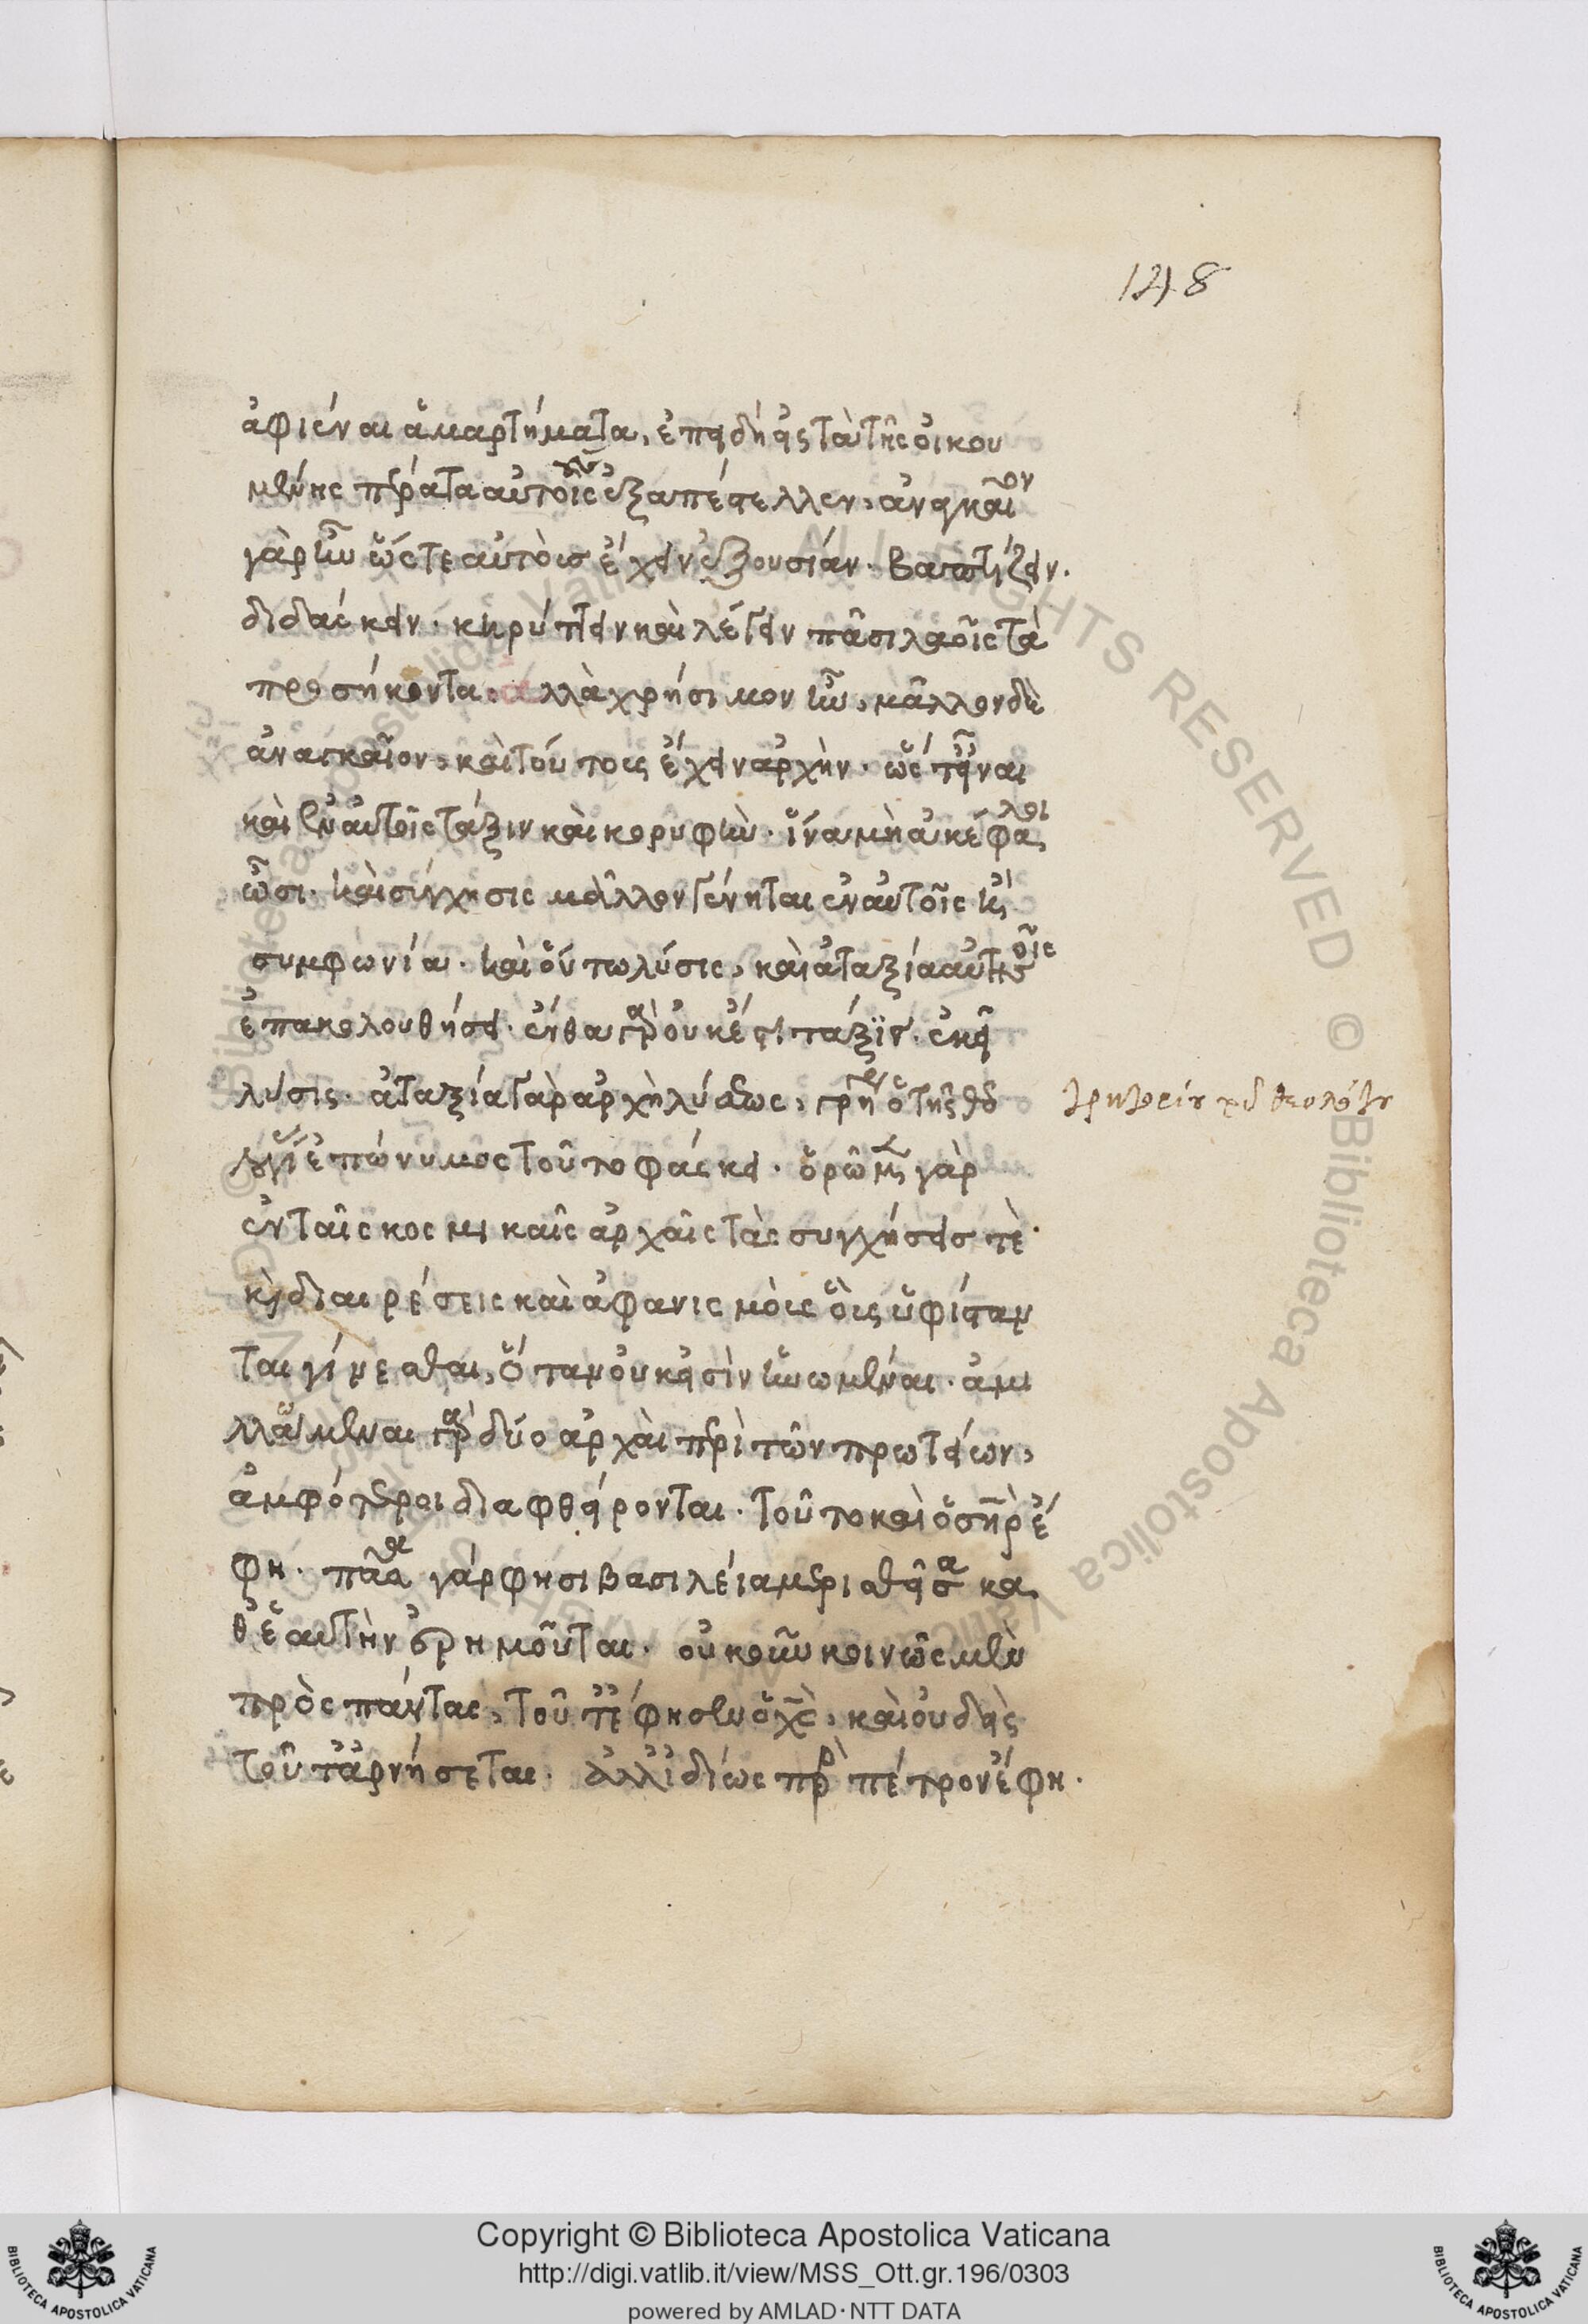 148
ἀφιέναι ἁμαρτήματα, ἐπειδὴ εἰς τὰ τῆς οἰκου
μένης πέρατα αὐτοὺς ἐξαπέστελλεν, ἀναγκαῖον
γὰρ ἦν ὥστε αὐτὸισ ἔχειν ἐξουσίαν. βαπτίζειν.
διδάσκειν. κηρύττειν καὶ λέγειν πᾶσι λαοῖς τὰ
προσήκοντα. ἀλλὰ χρήσιμον ἦν, μᾶλλον δὲ
ἀναγκαῖον, καὶ τούτοις ἔχειν ἀρχὴν. ὥστ' εἶναι
καὶ ἐν αὐτοῖς τάξιν καὶ κορυφὴν. ἵνα μὴ ἀκέφαλοι
ὦσι. καὶ σύγχησις μᾶλλον γένηται ἐν αὐτοῖς ἢ
συμφωνία. καὶ οὕτω λύσις, καὶ ἀταξία αὐτοῖς
ἐπακολουθήσει. ἔνθα γὰρ οὐκ ἔστι τάξις. ἐκεῖ
λύσις. ἀταξία γὰρ ἀρχὴ λύσεως, γρηγόριος ὁ τῆς θεο
λογίας ἐπώνυμος τοῦτο φάσκει. ὁρῶμεν γὰρ
Γρηγορίου τοῦ θεολόγου
ἐν ταῖς κοσμικαῖς ἀρχαῖς τὰς συγχήσεισ τὲ
κὶ διαιρέσεις καὶ ἀφανισμὸις ὃις ὑφίσταν
ται γίνεσθαι, ὅταν οὐκ εἰσὶν ἡνωμέναι. ἁμι
λλώμεναι γὰρ δύο ἀρχαὶ περὶ τῶν πρωτείων,
ἀμφότεροι διαφθείρονται. τοῦτο καὶ ὁ σηρ ἔ
φη. πᾶσα γάρ φησι βασιλεία μερισθεῖσα κα
θ' ἑαυτὴν ἐρημοῦται. οὐκοῦν κοινῶς μὲν
πρὸς πάντας, τοῦτ' ἔφησεν ὁ χς, καὶ οὐδεὶς
τοῦτ' ἀρνήσεται. ἀλλ' ἰδίως πρὸς πέτρον ἔφη.
Copyright © Biblioteca Apostolica Vaticana
http://digi.vatlib.it/view/MSS_Ott.gr.196/0303
powered by AMLAD·NTT DATA
BIBLIOTECA APOSTOLICA VATICANA
BIBLIOTECA APOSTOLICA VATICANA